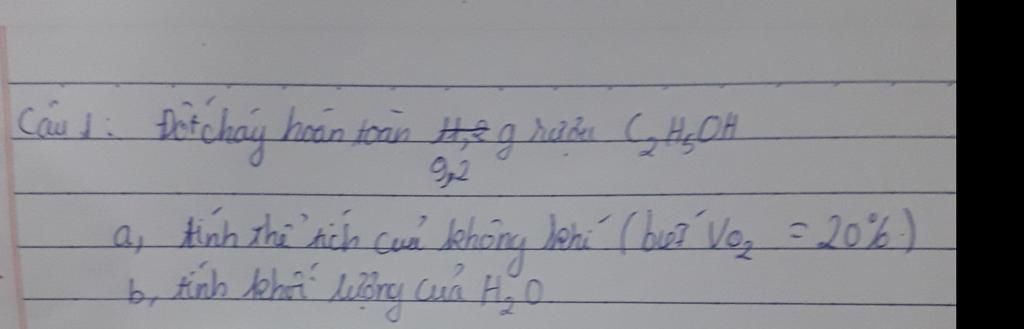 Câu 1: Đốt cháy hoàn toàn g rượu C₂H₅OH
9,2
a, tính thể tích của không khí (biết VO₂ = 20%)
b, tính khối lượng của H₂O